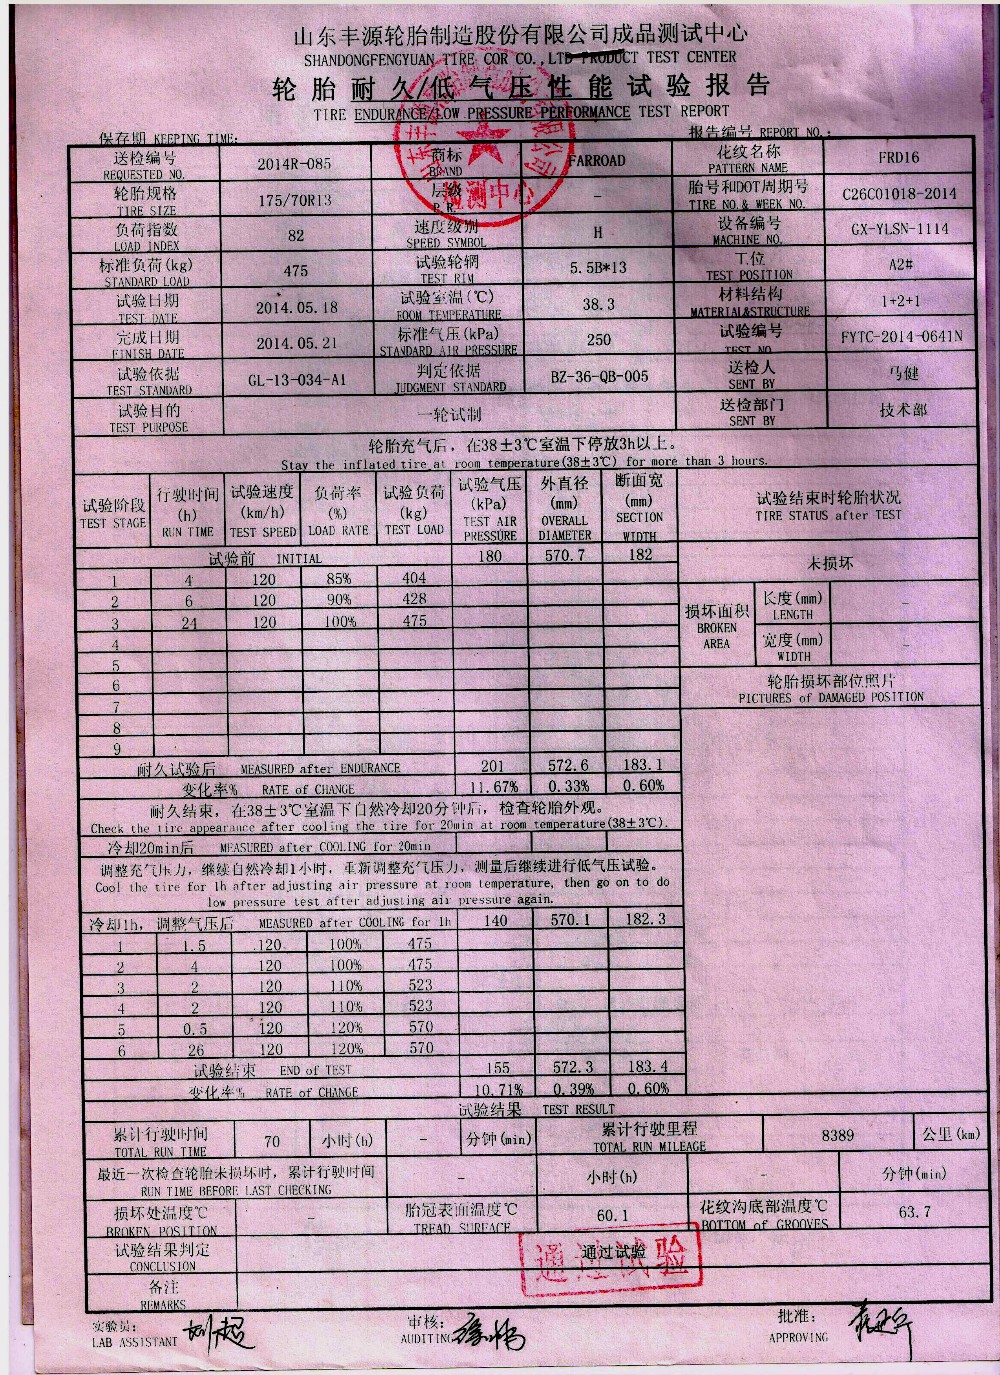 山东丰源轮胎制造股份有限公司成品测试中心
SHANDONGFENGYUAN TIRE COR CO.,LTD PRODUCT TEST CENTER
轮胎耐久/低气压性能试验报告
TIRE ENDURANCE/LOW PRESSURE PERFORMANCE TEST REPORT
保存期 KEEPING TIME: 报告编号 REPORT NO.:
送检编号 REQUESTED NO. 2014R-085 商标 BRAND FARROAD 花纹名称 PATTERN NAME FRD16
轮胎规格 TIRE SIZE 175/70R13 层级 P.R. - 胎号和DOT周期号 TIRE NO.& WEEK NO. C26C01018-2014
负荷指数 LOAD INDEX 82 速度级别 SPEED SYMBOL H 设备编号 MACHINE NO. GX-YLSN-1114
标准负荷(kg) STANDARD LOAD 475 试验轮辋 TEST RIM 5.5B*13 工位 TEST POSITION A2#
试验日期 TEST DATE 2014.05.18 试验室温(℃) ROOM TEMPERATURE 38.3 材料结构 MATERIAL&STRUCTURE 1+2+1
完成日期 FINISH DATE 2014.05.21 标准气压(kPa) STANDARD AIR PRESSURE 250 试验编号 TEST NO. FYTC-2014-0641N
试验依据 TEST STANDARD GL-13-034-A1 判定依据 JUDGMENT STANDARD BZ-36-QB-005 送检人 SENT BY 马健
试验目的 TEST PURPOSE 一轮试制 送检部门 SENT BY 技术部
轮胎充气后，在38±3℃室温下停放3h以上。
Stay the inflated tire at room temperature(38±3℃) for more than 3 hours.
试验阶段 TEST STAGE 行驶时间 (h) RUN TIME 试验速度 (km/h) TEST SPEED 负荷率 (%) LOAD RATE 试验负荷 (kg) TEST LOAD 试验气压 (kPa) TEST AIR PRESSURE 外直径 (mm) OVERALL DIAMETER 断面宽 (mm) SECTION WIDTH 试验结束时轮胎状况 TIRE STATUS after TEST
试验前 INITIAL 180 570.7 182 未损坏
1 4 120 85% 404
2 6 120 90% 428
3 24 120 100% 475
损坏面积 BROKEN AREA 长度(mm) LENGTH -
宽度(mm) WIDTH -
4
5
6
轮胎损坏部位照片
PICTURES of DAMAGED POSITION
7
8
9
耐久试验后 MEASURED after ENDURANCE 201 572.6 183.1
变化率% RATE of CHANGE 11.67% 0.33% 0.60%
耐久结束，在38±3℃室温下自然冷却20分钟后，检查轮胎外观。
Check the tire appearance after cooling the tire for 20min at room temperature(38±3℃).
冷却20min后 MEASURED after COOLING for 20min
调整充气压力，继续自然冷却1小时，重新调整充气压力，测量后继续进行低气压试验。
Cool the tire for 1h after adjusting air pressure at room temperature, then go on to do
low pressure test after adjusting air pressure again.
冷却1h，调整气压后 MEASURED after COOLING for 1h 140 570.1 182.3
1 1.5 120 100% 475
2 4 120 100% 475
3 2 120 110% 523
4 2 120 110% 523
5 0.5 120 120% 570
6 26 120 120% 570
试验结束 END of TEST 155 572.3 183.4
变化率% RATE of CHANGE 10.71% 0.39% 0.60%
试验结果 TEST RESULT
累计行驶时间 TOTAL RUN TIME 70 小时(h) - 分钟(min) 累计行驶里程 TOTAL RUN MILEAGE 8389 公里(km)
最近一次检查轮胎未损坏时，累计行驶时间 RUN TIME BEFORE LAST CHECKING - 小时(h) - 分钟(min)
损坏处温度℃ BROKEN POSITION - 胎冠表面温度℃ TREAD SURFACE 60.1 花纹沟底部温度℃ BOTTOM of GROOVES 63.7
试验结果判定 CONCLUSION 通过试验
通过试验
备注 REMARKS
实验员: LAB ASSISTANT 审核: AUDITING 批准: APPROVING